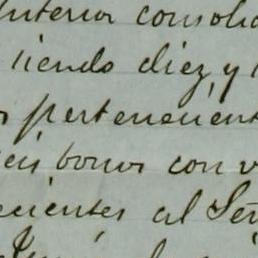 Interior consolid
siendo diez, y
pertenecient
eis bonos con v
ecientes al Señ